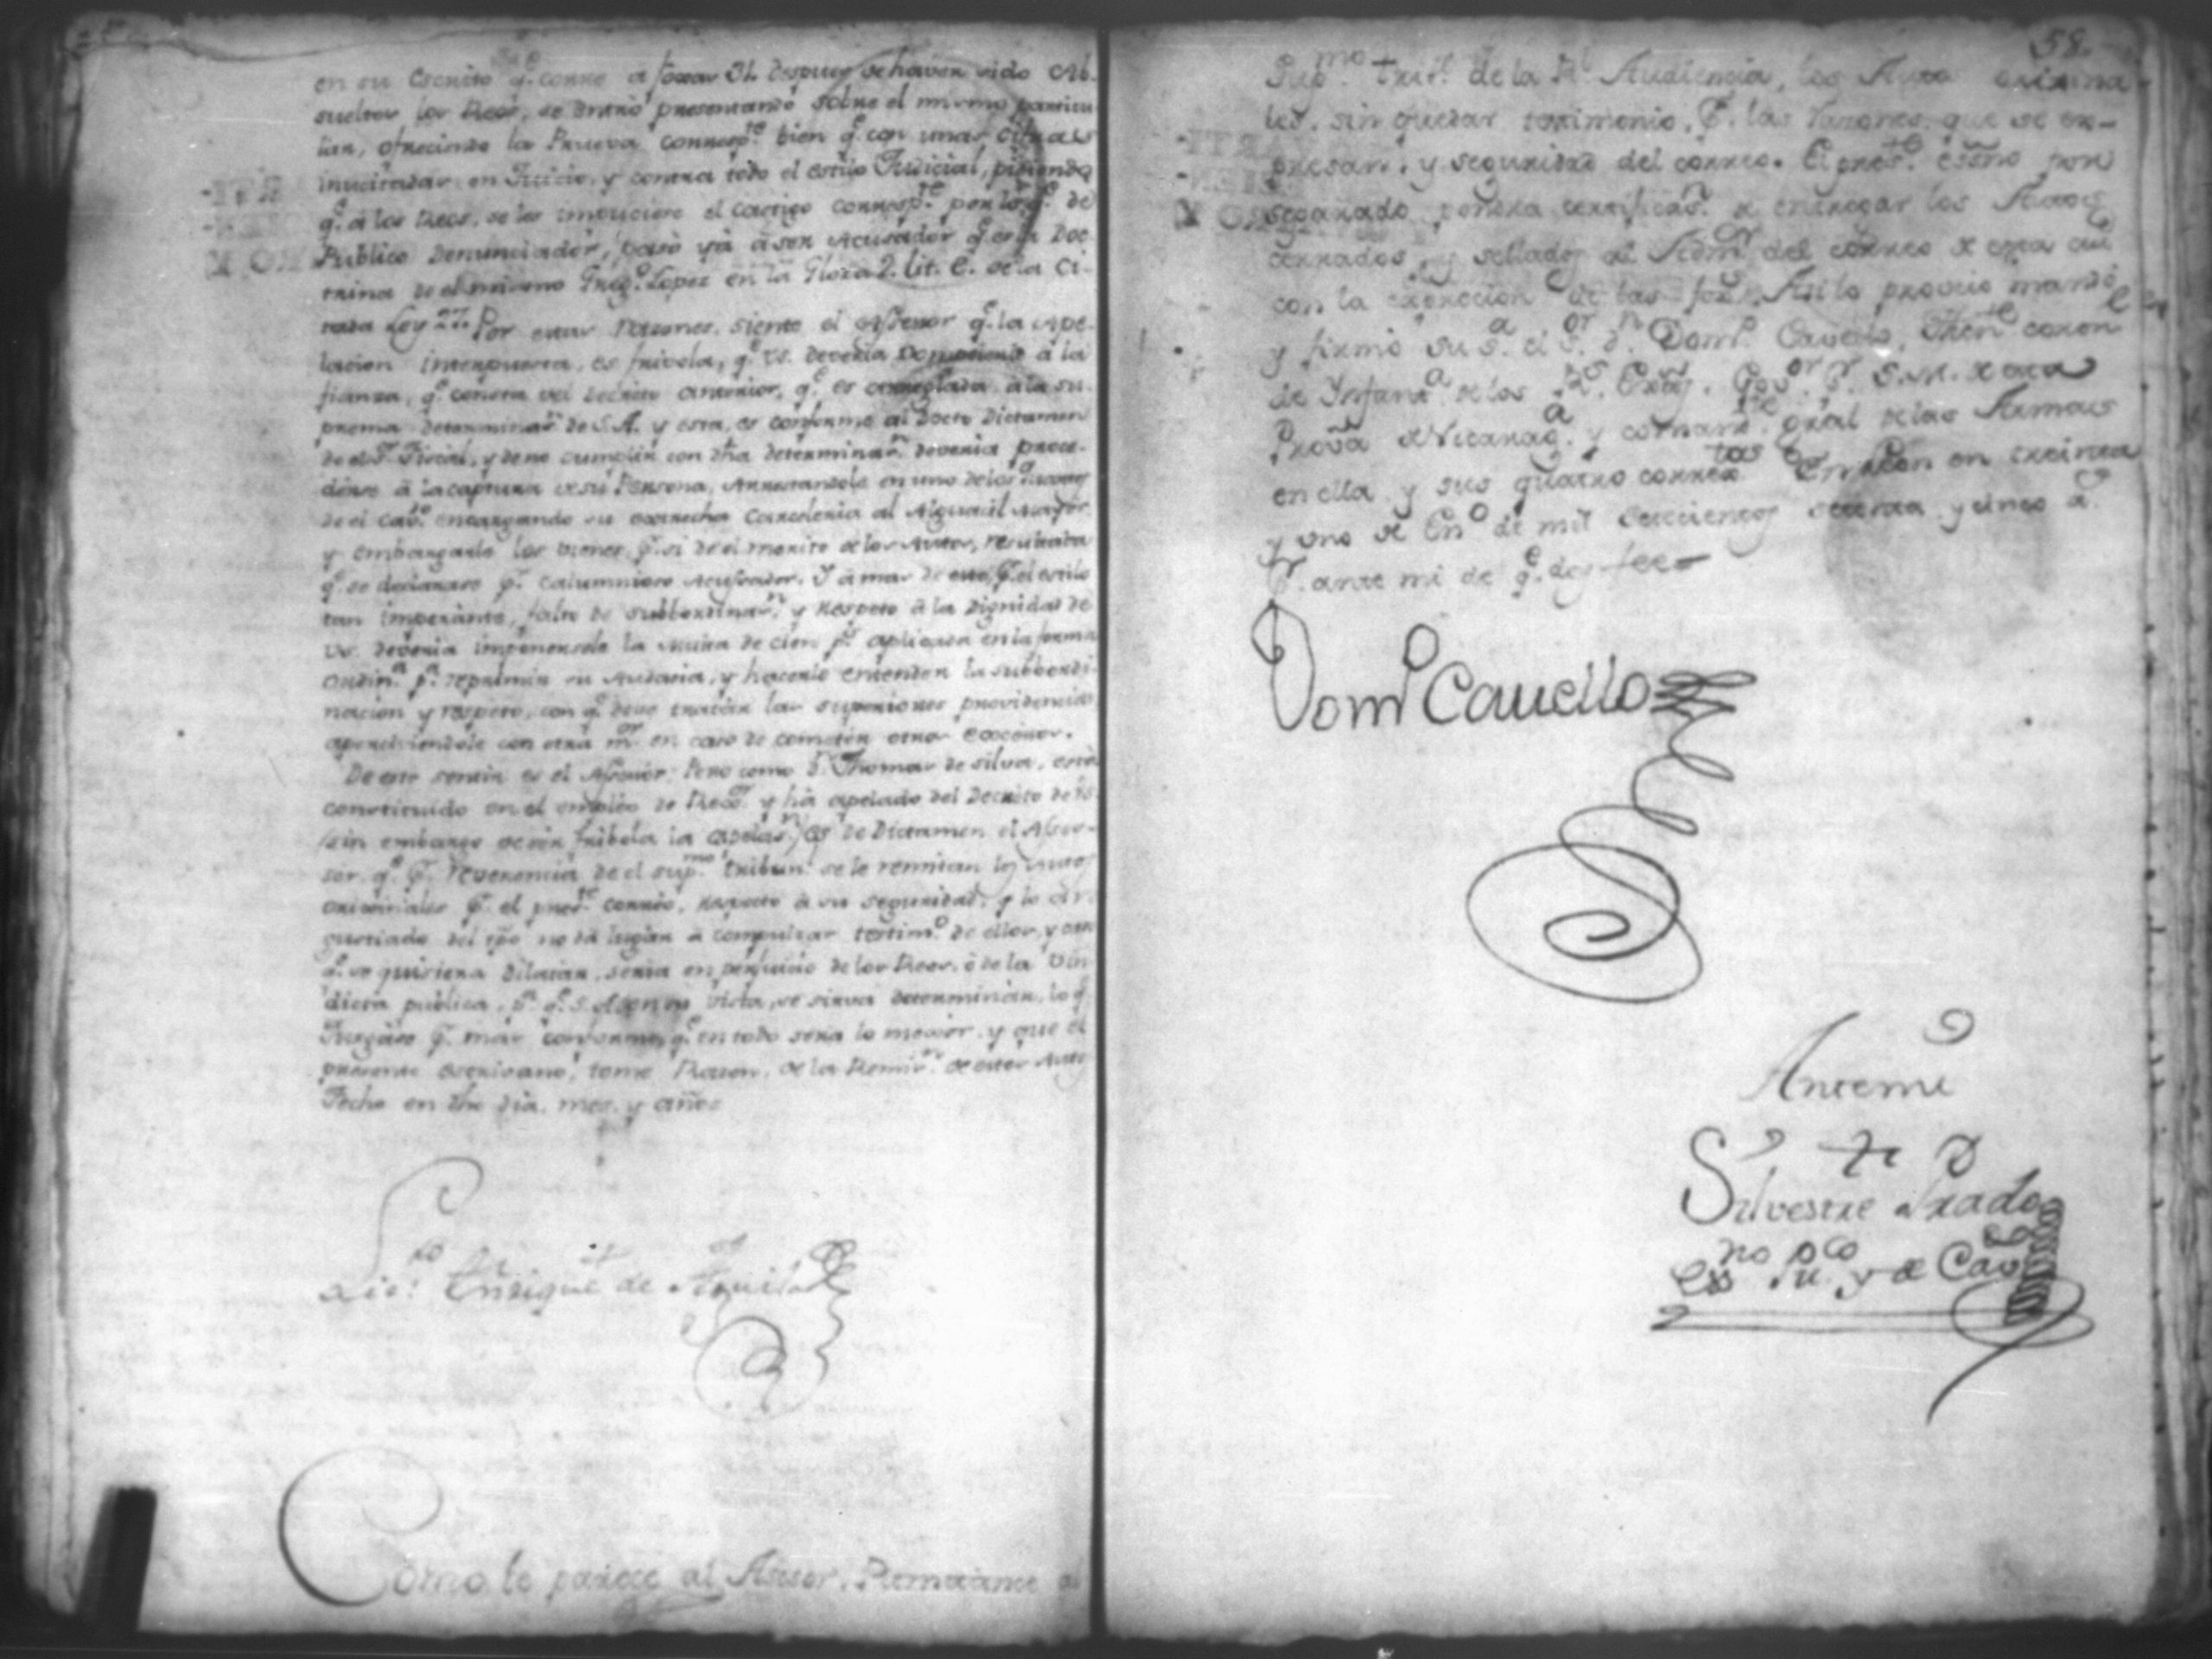 en su Escrito q.e corre a foxas 31. despues de haver sido Ab-
sueltos los Reos, se entró presentando sobre el mismo particu-
lar, ofreciendo la Prueva corresp.te bien q.e con unas
inucitadas en Juicio, y contra todo el estilo Judicial, pidiendo
q.e á los Reos, se les impuciere el castigo corresp.te por lo q.e de
Publico Denunciador, pasó yá á ser Acusador q.e es la Doc-
trina de el mismo Greg.o Lopez en la Gloza 2. lit. C. de la Ci-
tada Ley 27. Por estas razones, siente el Assesor q.e la Ape-
lacion interpuesta, es frivola, q.e VS. deveria à la
fianza, q.e consta del Decreto anterior, q.e es arreglada, a la su-
prema determinac.n de S.A. y esta, es conforme al Docto Dictamen
de el S.r Fiscal, y de no cumplir con dha determinac.n deveria proce-
derse à la captura de su Persona, arrestandole en uno de los
de el Cav.do encargando su estrecha Carceleria al Alguacil Mayor
y embargarle los vienes, p.r si de el merito de los Autos, resultara
q.e se declarase p.r calumnioso Acusador. Y á mas de esto, p.r el estilo
tan imperante, falto de subbordinac.n y respeto á la Dignidad de
VS. deveria imponersele la multa de cien p.s aplicada en la forma
ordin.a p.a reprimir su Audacia, y hacerle entender la subbordi-
nacion y respeto, con q.e deve tratar las superiores providencias
aperciviendole con otra m.or en caso de cometer otros Excesos.
De este sentir es el Assesor: Pero como D. Thomas de Silva, está
constituido en el empleo de y há apelado del Decreto de VS.
(sin embargo de ser fribola la apelac.n) es de Dictamen el Asse-
sor q.e p.r reverencia de el sup.mo tribun.l se le remitan los Autos
originales p.r el pres.te correo, respecto à su seguridad, y lo an-
gustiado del tpo no dá lugar à compulsar testim.o de ellos, y
q.e se quisiera dilatar, seria en perjuicio de los Reos, ó de la Vin-
dicta publica, p.a q.e S.A. en su vista, se sirva determinar, lo q.e
Juzgare p.r mas conforme, q.e en todo sera lo mexor, y que el
presente escrivano, tome Razon, de la Remis.n de estos Autos
Fecho en dho dia, mes, y año=
Lic.do Enrique de Aguilar
Como le parece al Asesor, Remitanse al
58.
Sup.mo trib.l de la R.l Audiencia, los Autos origina-
les, sin quedar textimonio, p.r las razones que se ex-
presan, y seguridad del correo. El pres.te essno pon
segurado, pondra certificas.n de entregar los Autos
cerrados, y sellados al Adm.or del correo de esta ciu.
con la exprecion de las fox.s Asi lo proveió mandó
y firmó su S.a el S.or D.n Dom.o Cavello, Then.te coron.l
de Ynfant.a de los R.s Exer.s Gov.or p.r S.M. de esta
Prov.a de Nicarag.a y comand.te gral de las Armas
en ella, y sus quatro correx.tos En Leon en treinta
y uno de En.o de mil setecientos setenta y cinco a.s
P.r ante mi de q.e doy fee=
Dom.o Cavello
Ante mi
Silvestre Prado
ess.no pu.co y de Cav.do